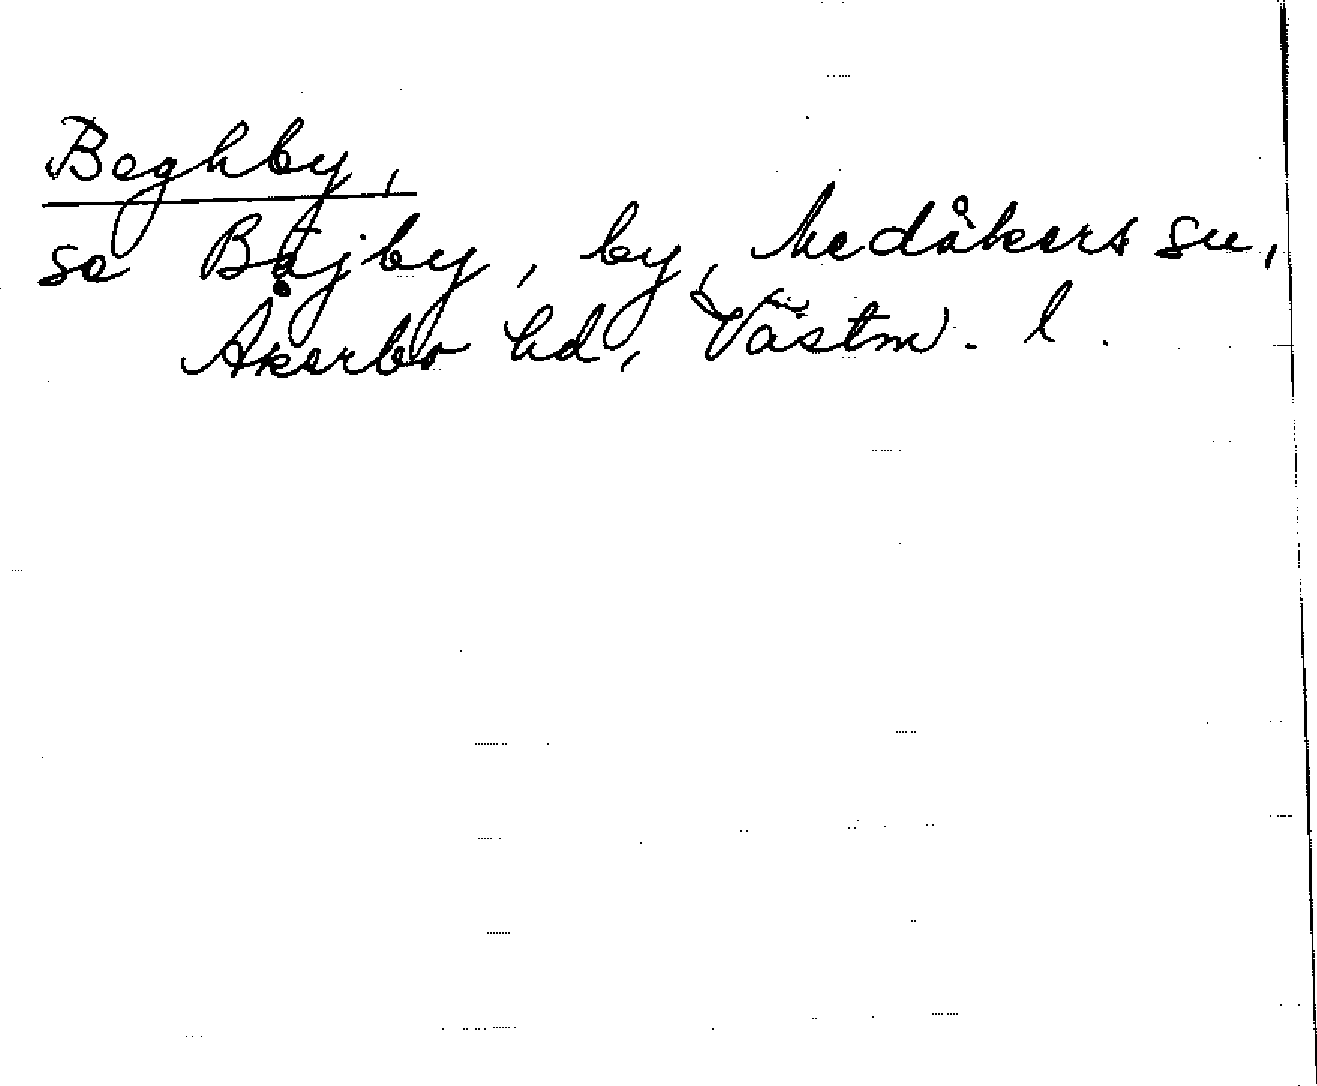 Beghby,
se Bäjby, by, Medåkers sn,
Åkerbo hd, Västm. l.